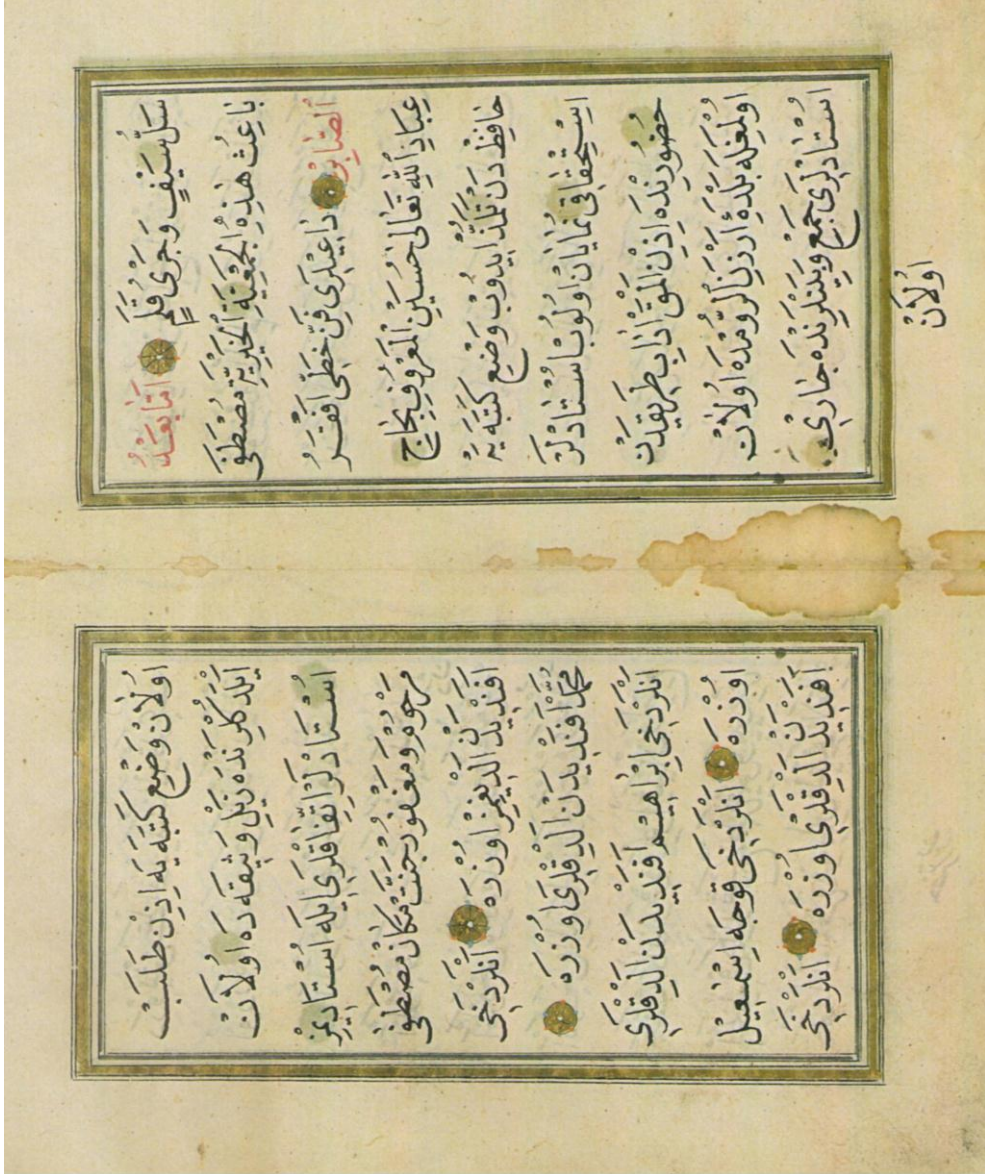 سَلِّ سَيْفٍ وَجَرْىِ قَلَمٍ اَمَّا بَعْدُ
بَاعِثُ هٰذِهِ الْجَمْعِيَّةِ الْخَيْرِيَّةِ مُصْطَفَى
دَاعِيلَرِى فَنِّ خَطِّى اَفْقَرُ
عِبَادِ اللهِ تَعَالٰى حُسَيْنِ الْمَعْرُوفِ بِحَاجِّ
حَافِظْ دَنْ تَلَمُّذْ اِيدُوبْ وَضْعِ كَتَبَه يَه
اِسْتِحْقَاقِى نُمَايَانْ اُولُوبْ اُسْتَادْلَرْ
حُضُورِنْدَه اِذِنْ اَلْمَقْ اٰدَابِ طَرِيقْدَنْ
اُولْمَغْلَه بَلْدَۀِ اَرْزَنِ الرُّومْدَه اُولَانْ
اُسْتَادْلَرِى جَمْعْ وَبَيْنْلَرِنْدَه جَارِى
اُولَانْ
اُولَانْ وَضْعِ كَتَبَه يَه اِذِنْ طَلَبْ
اَيْلَدِكْلَرِنْدَه نَيْلِ وَثِيقَه دَه اُولَانْ
اُسْتَادْلَرْ اِتِّفَاقْلَرِى اِيلَه اُسْتَادِيمِزْ
مَرْحُومْ وَمَغْفُورْ جَنَّتْ مَكَانْ مُصْطَفَى
اَفَنْدِيدَنْ اَلْدِيغِمِزْ اُوزْرَه اَنْلَرْ دَخِى
مُحَمَّدْ اَفَنْدِيدَنْ اَلْدِقْلَرِى اُوزْرَه
اَنْلَرْ دَخِى اِبْرَاهِيمْ اَفَنْدِيدَنْ اَلْدِقْلَرِى
اُوزْرَه اَنْلَرْ دَخِى قُوجَه اِسْمٰعِيلْ
اَفَنْدِيدَنْ اَلْدِقْلَرِى اُوزْرَه اَنْلَرْ دَخِى